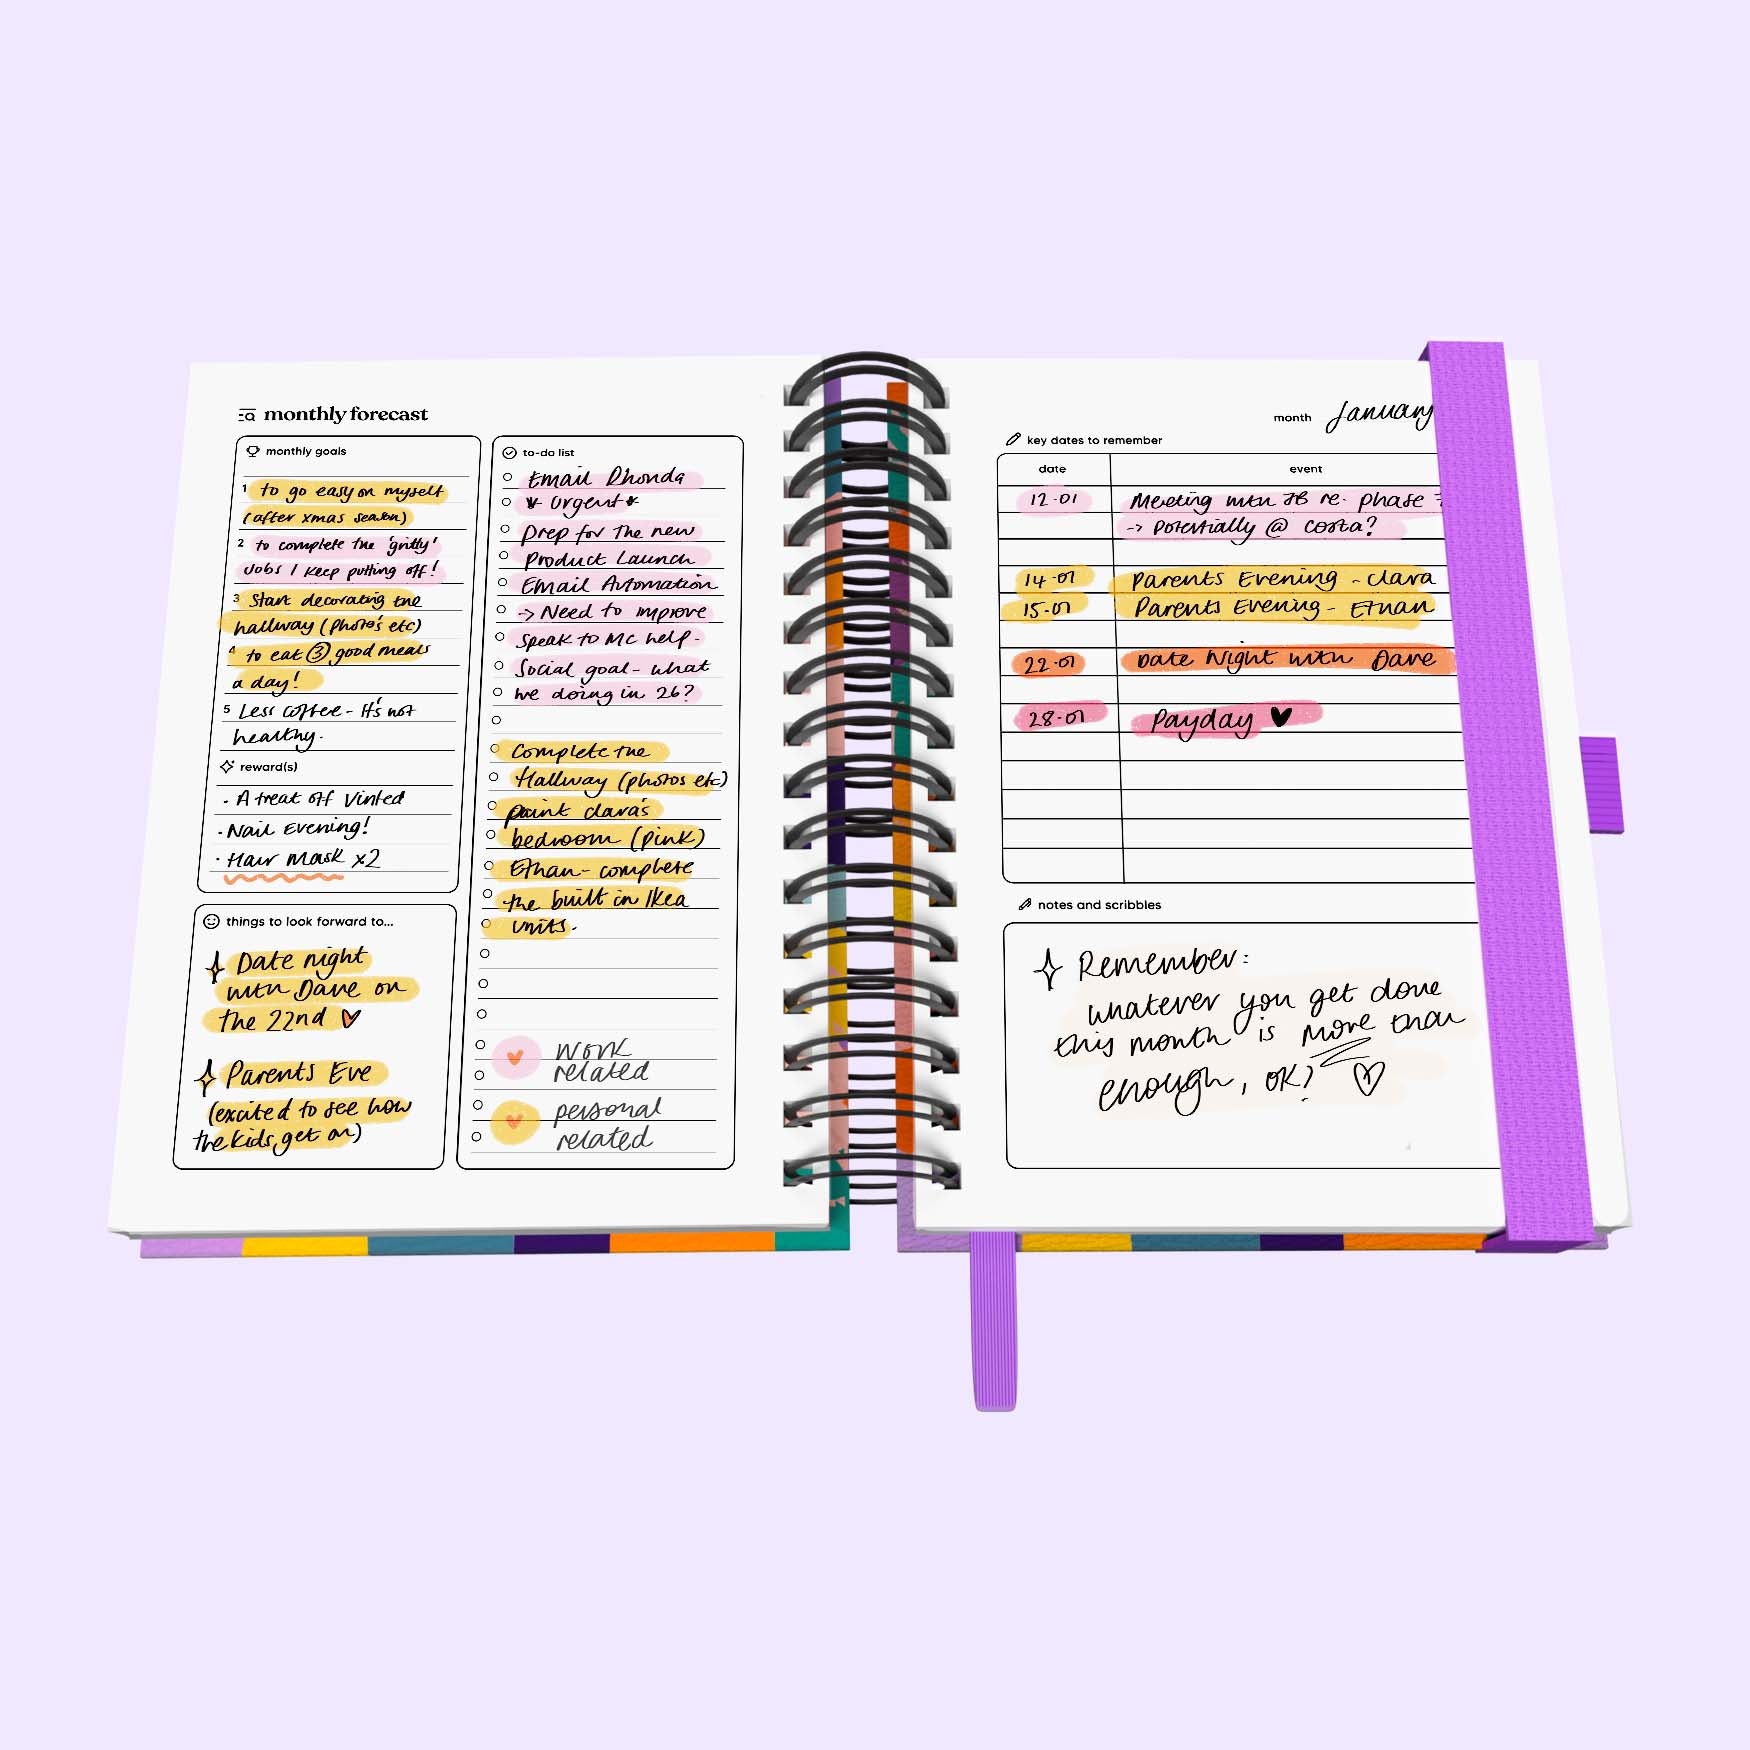 monthly forecast
monthly goals
1 to go easy on myself
(after xmas season)
2 to complete the 'gritty'
Jobs I keep putting off!
3 Start decorating the
hallway (photo's etc)
4 to eat 3 good meals
a day!
5 Less coffee - It's not
healthy.
reward(s)
· A treat off Vinted
· Nail Evening!
· Hair Mask x2
things to look forward to...
Date night
with Dave on
the 22nd
Parents Eve
(excited to see how
the kids get on)
to-do list
Email Rhonda
* Urgent *
Prep for the new
Product Launch
Email Automation
-> Need to improve
Speak to MC help -
Social goal - what
we doing in 26?
Complete the
Hallway (photos etc)
paint clara's
bedroom (pink)
Ethan - complete
the built in Ikea
units.
work
related
personal
related
month January
key dates to remember
date event
12-01 Meeting with JB re. phase
-> Potentially @ costa?
14-01 Parents Evening - Clara
15-01 Parents Evening - Ethan
22-01 Date Night with Dave
28-01 Payday ♥
notes and scribbles
Remember:
whatever you get done
this month is more than
enough, OK?